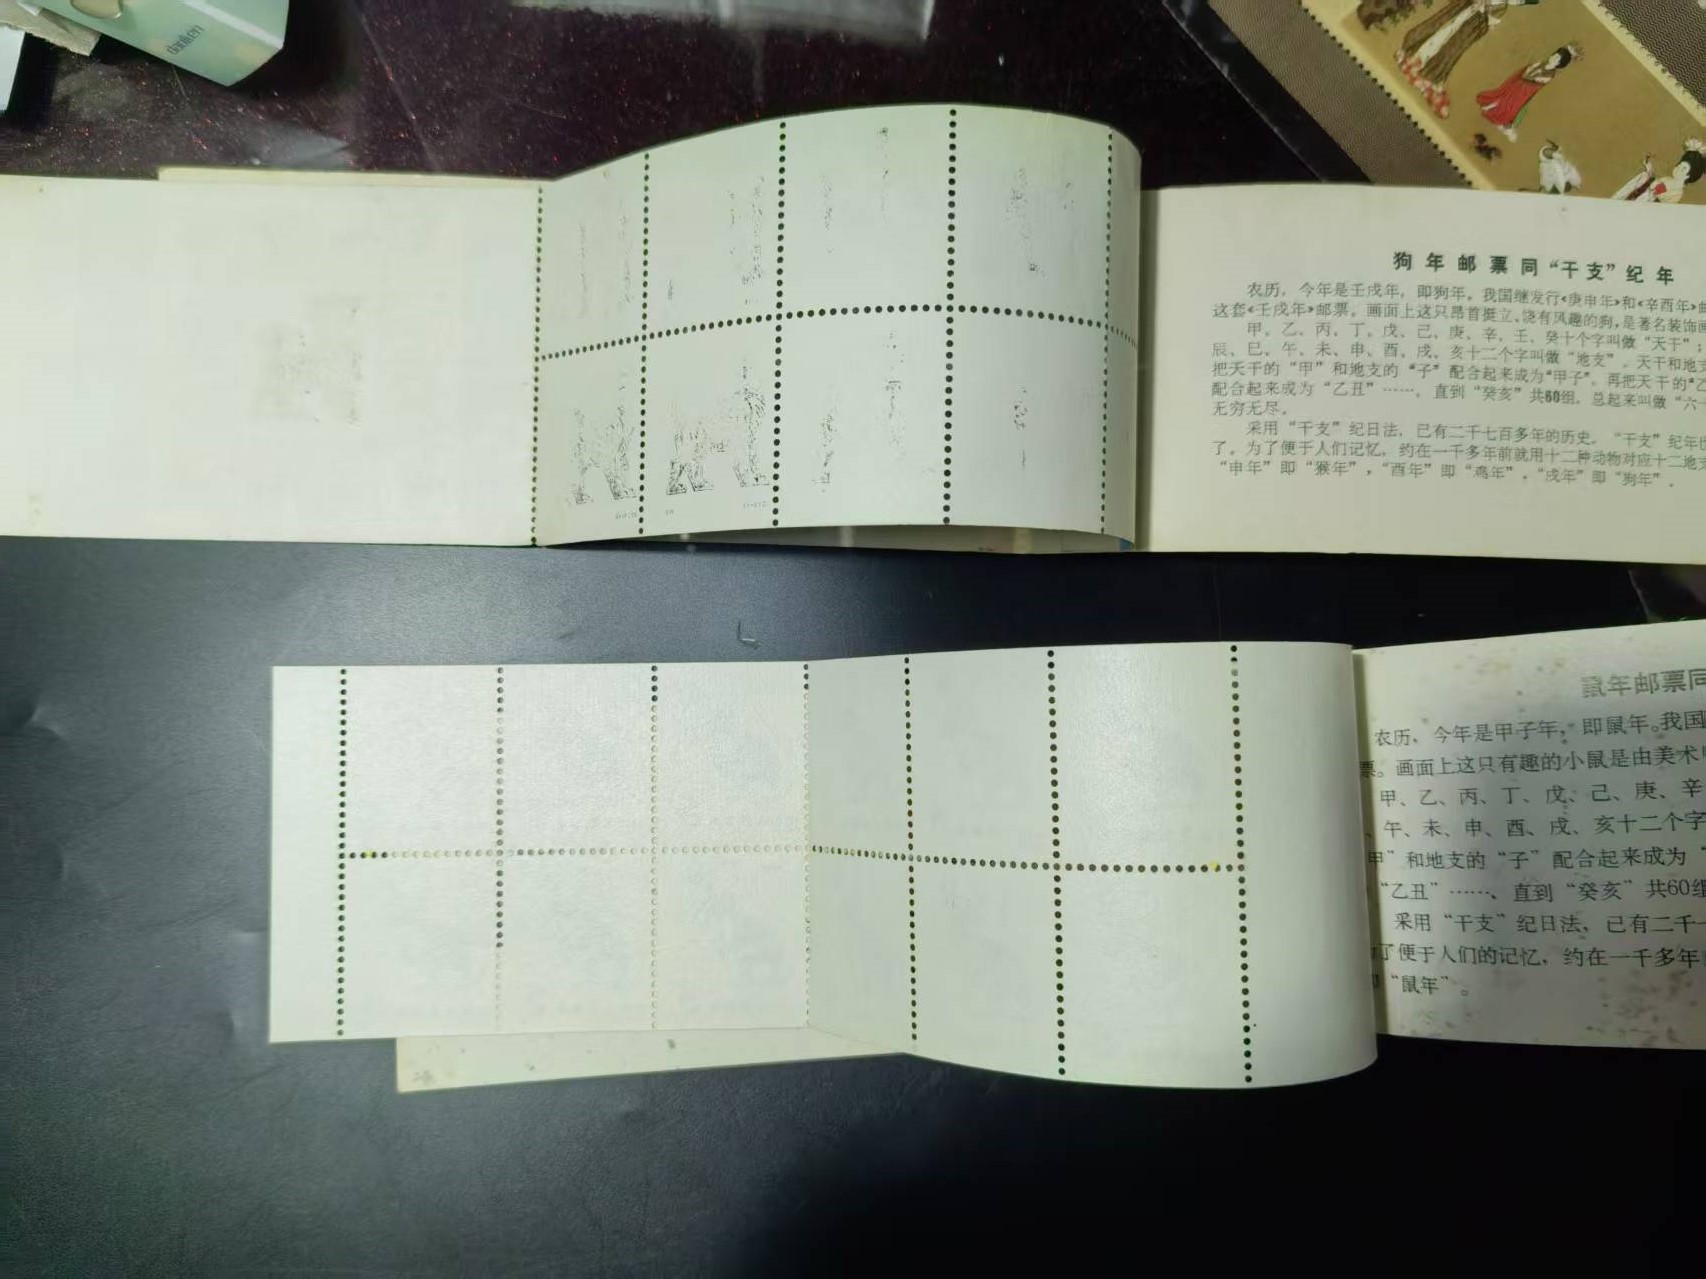 狗年邮票同“干支”纪年
农历，今年是壬戌年，即狗年。我国继发行《庚申年》和《辛酉年》邮
这套《壬戌年》邮票。画面上这只昂首挺立、饶有风趣的狗，是著名装饰画
甲、乙、丙、丁、戊、己、庚、辛、壬、癸十个字叫做“天干”；
辰、巳、午、未、申、酉、戌、亥十二个字叫做“地支”。天干和地支
把天干的“甲”和地支的“子”配合起来成为“甲子”。再把天干的“乙
配合起来成为“乙丑”……，直到“癸亥”共60组，总起来叫做“六十
无穷无尽。
采用“干支”纪日法，已有二千七百多年的历史。“干支”纪年也
了。为了便于人们记忆，约在一千多年前就用十二种动物对应十二地支
“申年”即“猴年”，“酉年”即“鸡年”，“戌年”即“狗年”。
鼠年邮票同
农历，今年是甲子年，即鼠年。我国
票。画面上这只有趣的小鼠是由美术
甲、乙、丙、丁、戊、己、庚、辛
、午、未、申、酉、戌、亥十二个字
甲”和地支的“子”配合起来成为“
“乙丑”……、直到“癸亥”共60组
采用“干支”纪日法，已有二千七
了便于人们的记忆，约在一千多年
“鼠年”。